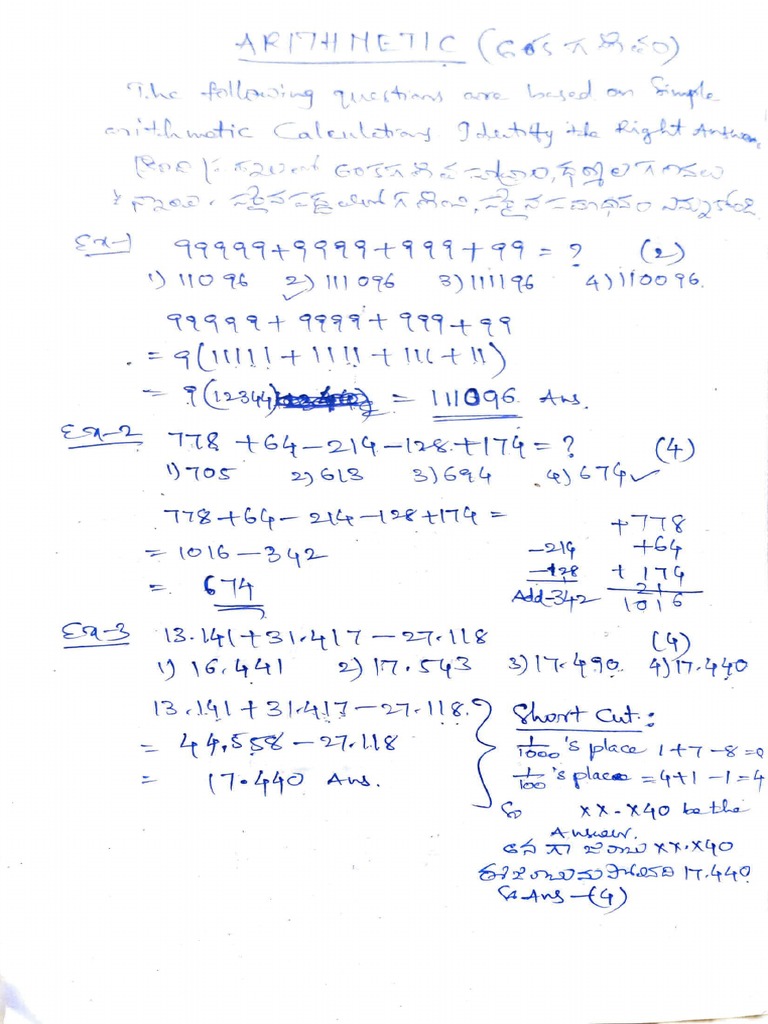 ARITHMETIC (అంక గణితం)
The following questions are based on Simple
arithmatic Calculations. Identify the Right Answer.
Ex-1 99999+9999+999+99 = ? (2)
1) 11096 2) 111096 3) 111196 4) 110096.
99999 + 9999 + 999 + 99
= 9(11111 + 1111 + 111 + 11)
= 9(12344) = 111096 Ans.
Ex-2 778 +64-214-128+174 = ? (4)
1) 705 2) 613 3) 694 4) 674 ✓
778+64-214-128+174 =
= 1016-342
= 674
+778
-214 +64
-128 +174
21
Add-342 1016
Ex-3 13.141+31.417-27.118 (4)
1) 16.441 2) 17.543 3) 17.490 4) 17.440
13.141+31.417-27.118.
= 44.558-27.118
= 17.440 Ans.
Short Cut:
1/1000's place 1+7-8=0
1/100's place =4+1-1=4
So xx.x40 be the
Answer.
xx.x40
17.440
So Ans-(4)